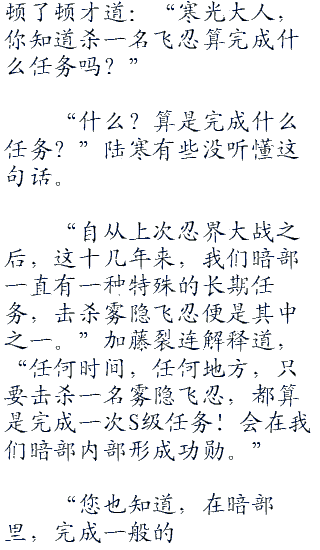 顿了顿才道：“寒光大人，
你知道杀一名飞忍算完成什
么任务吗？”
“什么？算是完成什么
任务？”陆寒有些没听懂这
句话。
“自从上次忍界大战之
后，这十几年来，我们暗部
一直有一种特殊的长期任
务，击杀雾隐飞忍便是其中
之一。”加藤裂连解释道，
“任何时间，任何地方，只
要击杀一名雾隐飞忍，都算
是完成一次S级任务！会在我
们暗部内部形成功勋。”
“您也知道，在暗部
里，完成一般的